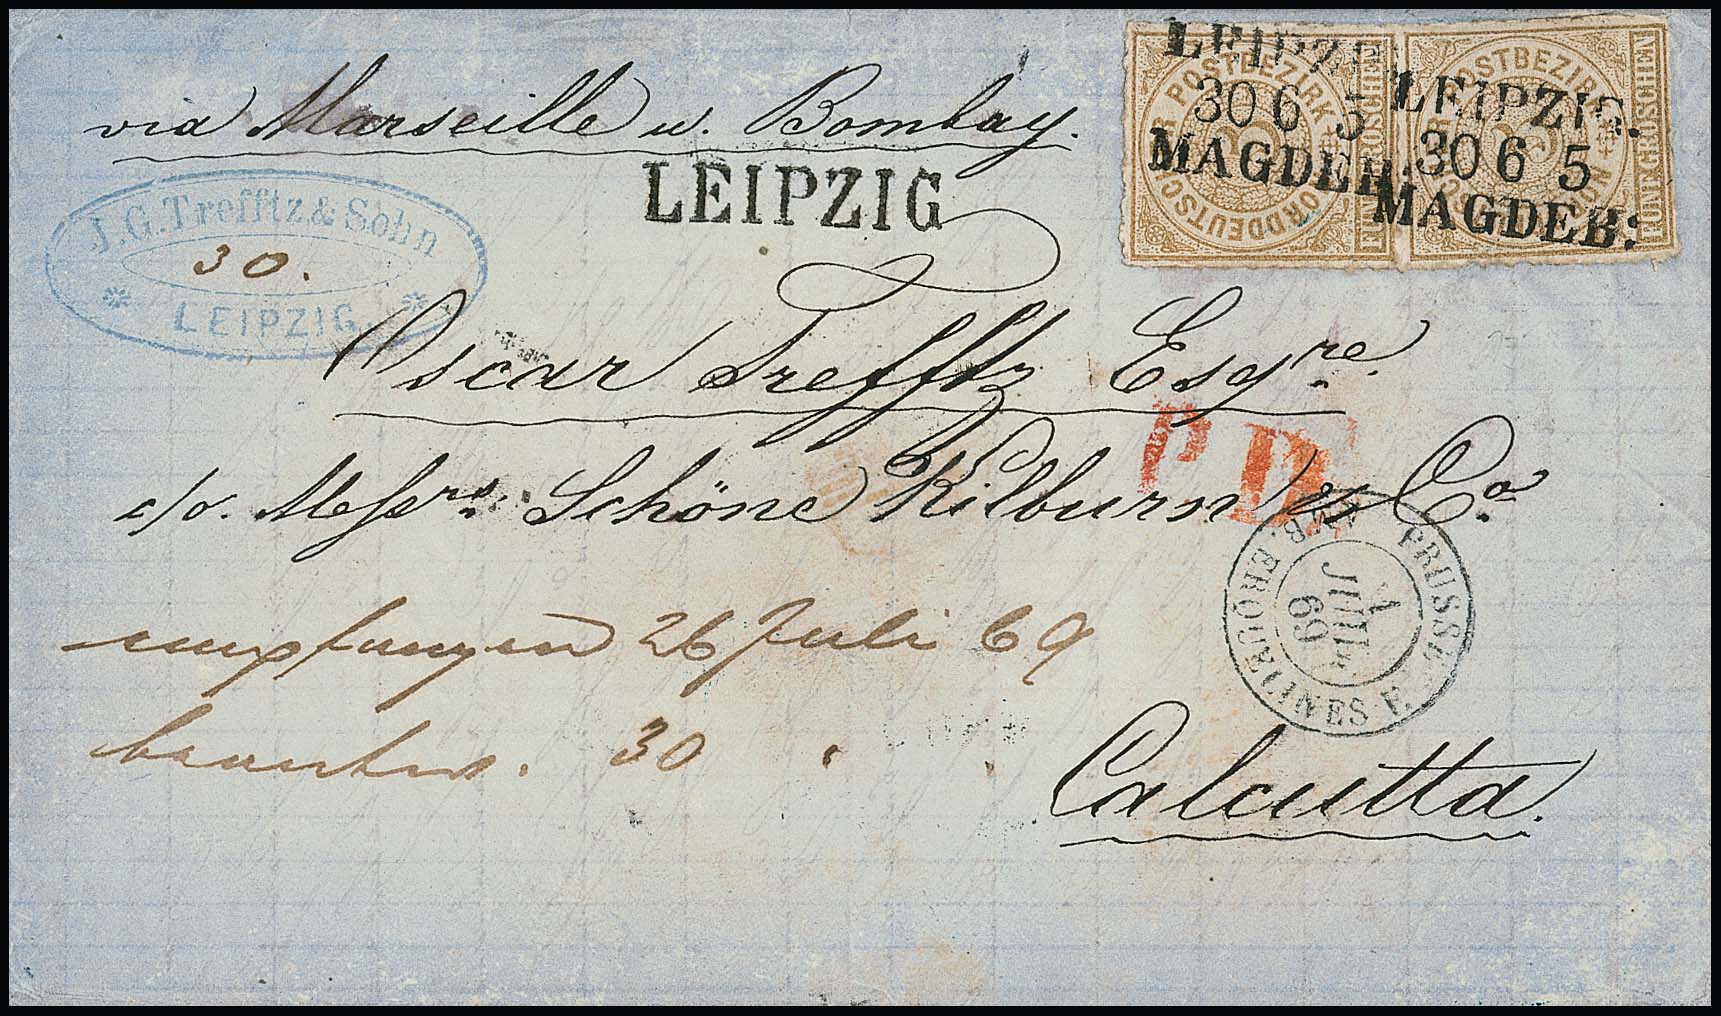 via Marseille u. Bombay.
LEIPZIG
J. G. Trefftz & Sohn
30.
LEIPZIG
NORDDEUTSCHER POSTBEZIRK
FÜNF GROSCHEN
LEIPZIG.
30 6 5
MAGDEB:
NORDDEUTSCHER POSTBEZIRK
FÜNF GROSCHEN
LEIPZIG.
30 6 5
MAGDEB:
Oscar Trefftz Esqre.
P.D.
c/o. Messrs. Schöne Kilburn & Co.
PRUSSE
AMB. ERQUELINES F.
1
JUIL
69
empfangen 26 Juli 69
beantw. 30 "
Calcutta.